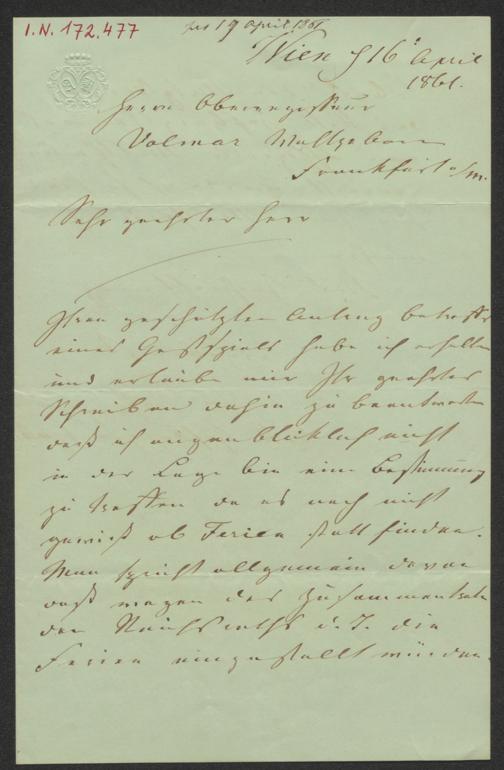 I.N. 172.477
19 April 1861
Wien d 16t April
1861.
Herrn Oberregisseur
Volmar Wallgeborn
Frankfurt a/m.
Sehr geehrter Herr
Ihren geschätzten Antrag betreffs
eines Gastspiels habe ich erhalten
und erlaube mir Ihr geehrtes
Schreiben dahin zu beantworten
daß ich augenblicklich nicht
in der Lage bin eine Bestimmung
zu treffen da es noch nicht
gewiß ob Ferien statt finden.
Man spricht allgemein davon
daß wegen des Zusammentritts
des Reichsraths d. J. die
Ferien eingestellt würden.